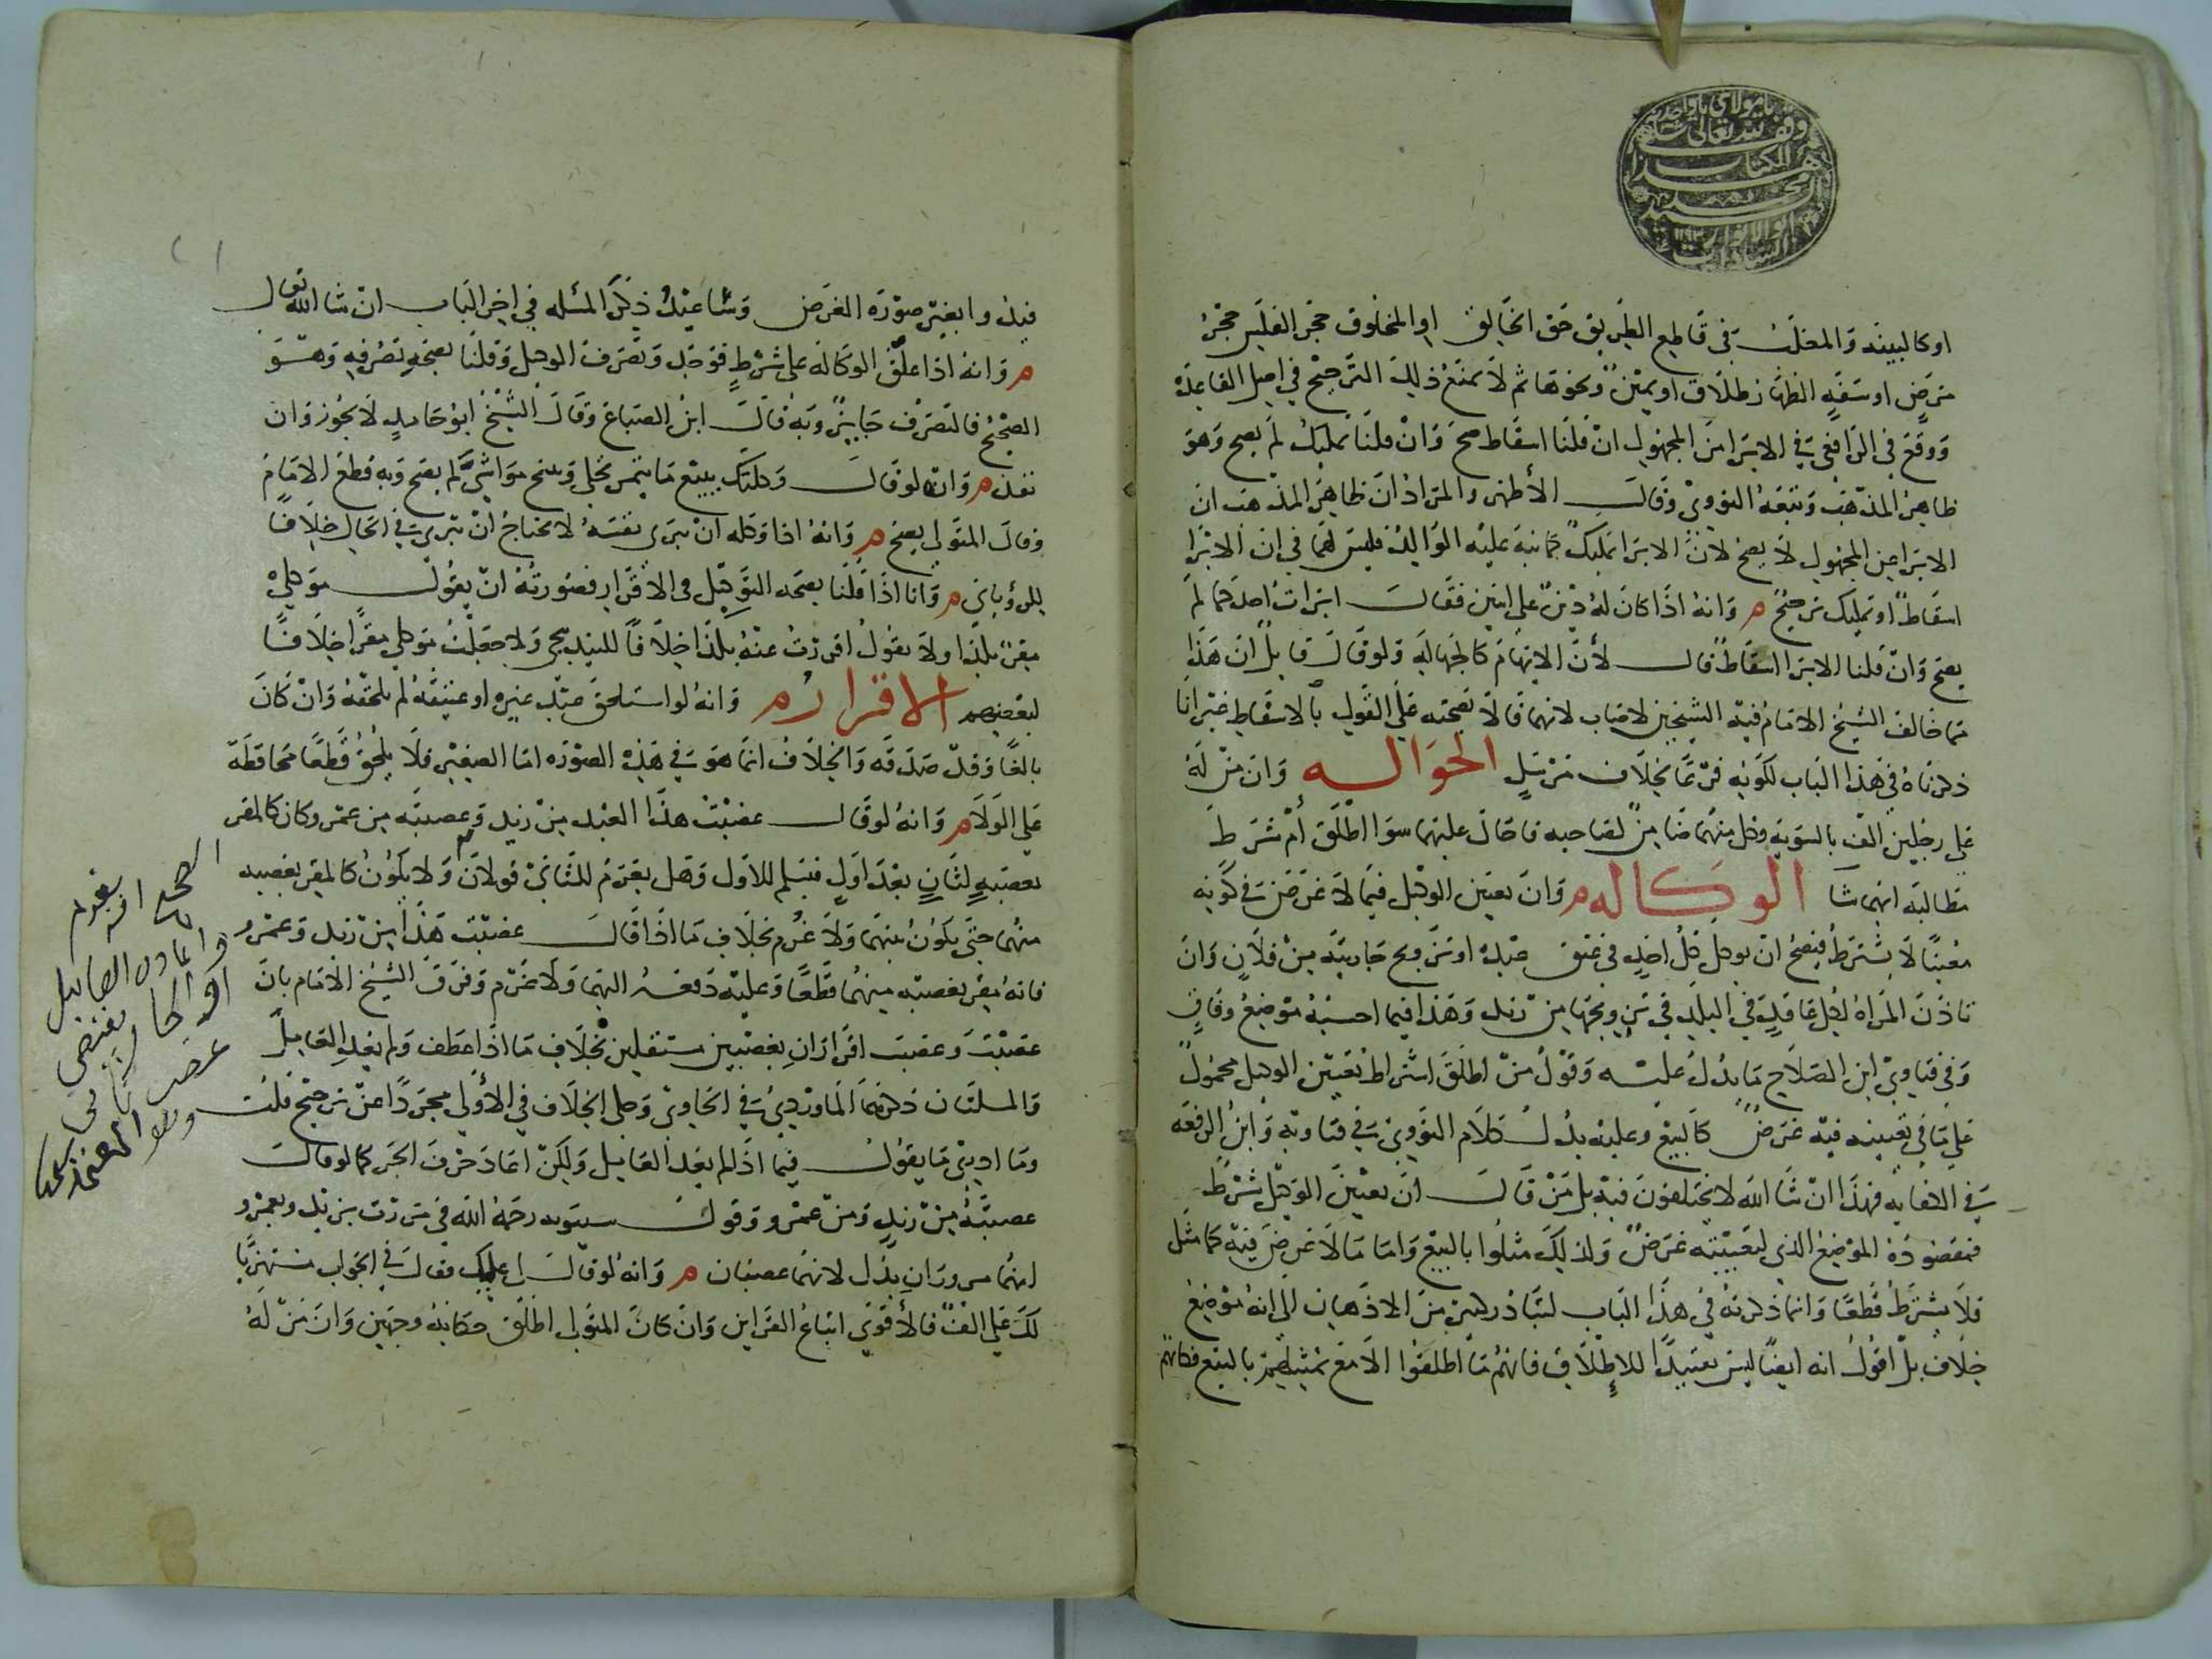 وقف لله تعالى
هذا الكتاب
او كالبينة والمغلب في قاطع الطريق حق الخالق او المخلوق حجر الفلس حجر
مرض او سفه الظهار طلاق او يمين ونحوها ثم لا يمنع ذلك الترجيح في اصل القاعدة
ووقع في الرافعي في الابرا من المجهول ان قلنا اسقاط صح وان قلنا تمليك لم يصح وهو
ظاهر المذهب وتبعه النووي وقال الأظهر والمراد ان ظاهر المذهب ان
الابرا من المجهول لا يصح لان الابرا تمليك كما نبه عليه الوالد فليس لهما في ان الابرا
اسقاط او تمليك ترجيح م وانه اذا كان له دين على اثنين فقال ابرات احدكما لم
يصح وان قلنا الابرا اسقاط قال لأن الابهام كالجهالة ولو قال قائل ان هذا
مما خالف الشيخ الامام فيه الشيخين لاصاب لانهما قالا بصحته على القول بالاسقاط غير انا
ذكرناه في هذا الباب لكونه فرعا بخلاف مرسل الحواله وان من له
على رجلين الف بالسويه وكل منهما ضامن لصاحبه فاحال عليهما سوا اطلق أم شرط
مطالبة ايهما شا الوكاله م وان تعيين الوكيل فيما لا غرض في كونه
معينا لا يشترط فيصح ان يوكل كل احد في عتق عبده او تزويج جاريته من فلان وان
تأذن المراة لكل عاقد في البلد في تزويجها من زيد وهذا فيما احسبه موضع وفاق
وفي فتاوي ابن الصلاح ما يدل عليه وقول من اطلق اشتراط تعيين الوكيل محمول
على ما في تعيينه فيه غرض كالبيع وعليه يدل كلام النووي في فتاويه وابن الرفعه
في الكفايه فهذا ان شا الله لا يختلفون فيه بل من قال ان تعيين الوكيل شرط
فمقصوده الموضع الذي لتعيينه غرض ولذلك مثلوا بالبيع واما ما لا غرض فيه كما مثل
فلا يشترط قطعا وانما ذكرته في هذا الباب لتبادر كثير من الاذهان الى انه موضع
خلاف بل اقول انه ايضا ليس تقييدا للاطلاق فانهم ما اطلقوا الا مع تمثيلهم بالبيع فكانهم
قيدوا بغير صورة الغرض وساعيد ذكر المسله في اخر الباب ان شا الله تعالى
م وانه اذا علق الوكالة على شرط فوجد وتصرف الوكيل وقلنا بصحة تصرفه وهو
الصحيح فالتصرف جايز وبه قال ابن الصباغ وقال الشيخ ابو حامد لا يجوز وان
نفذ م وانه لو قال وكلتك ببيع ما يثمر نخلي وينتج مواشي لم يصح وبه قطع الامام
وقال المتولى يصح م وانه اذا وكله ان يبرى نفسه لا يحتاج ان يبرى في الحال خلافا
للروياني م وانا اذا قلنا بصحة التوكيل في الاقرار فصورته ان يقول موكلي
مقر بكذا ولا يقول اقررت عنه بكذا خلافا للبندنيجي ولا جعلت موكلي مقرا خلافا
لبعضهم الاقرار م وانه لو استلحق عبد غيره او عتيقه لم يلحقه وان كان
بالغا وقد صدقه والخلاف انما هو في هذه الصوره اما الصغير فلا يلحق قطعا محافظة
على الولا م وانه لو قال غصبت هذا العبد من زيد وغصبته من عمرو كان كالمقر
بغصبه لثان بعد اول فيسلم للاول وهل يغرم للثاني قولان ولا يكون كالمقر بغصبه
منهما حتى يكون بينهما ولا غرم بخلاف ما اذا قال غصبت هذا من زيد وعمرو
فانه مقر بغصبه منهما قطعا وعليه دفعه اليهما ولا غرم وفرق الشيخ الامام بان
غصبت وغصبت اقراران بغصبين مستقلين بخلاف ما اذا عطف ولم يعد العامل
والمسلتان ذكرهما الماوردي في الحاوي وحكى الخلاف في الأولى مجردا عن ترجيح قلت
وما ادري ما يقول فيما اذا لم يعد العامل ولكن اعاد حرف الجر كما لو قال
غصبته من زيد ومن عمرو وقول سيبويه رحمه الله في مررت بزيد وبعمرو
انهما مروران يدل لانهما غصبان م وانه لو قال لي عليك فقال في الجواب مستهزيا
لك علي الف فالأقوى اتباع القراين وان كان المتولى اطلق حكاية وجهين وان من له
الصحيح انه يغرم